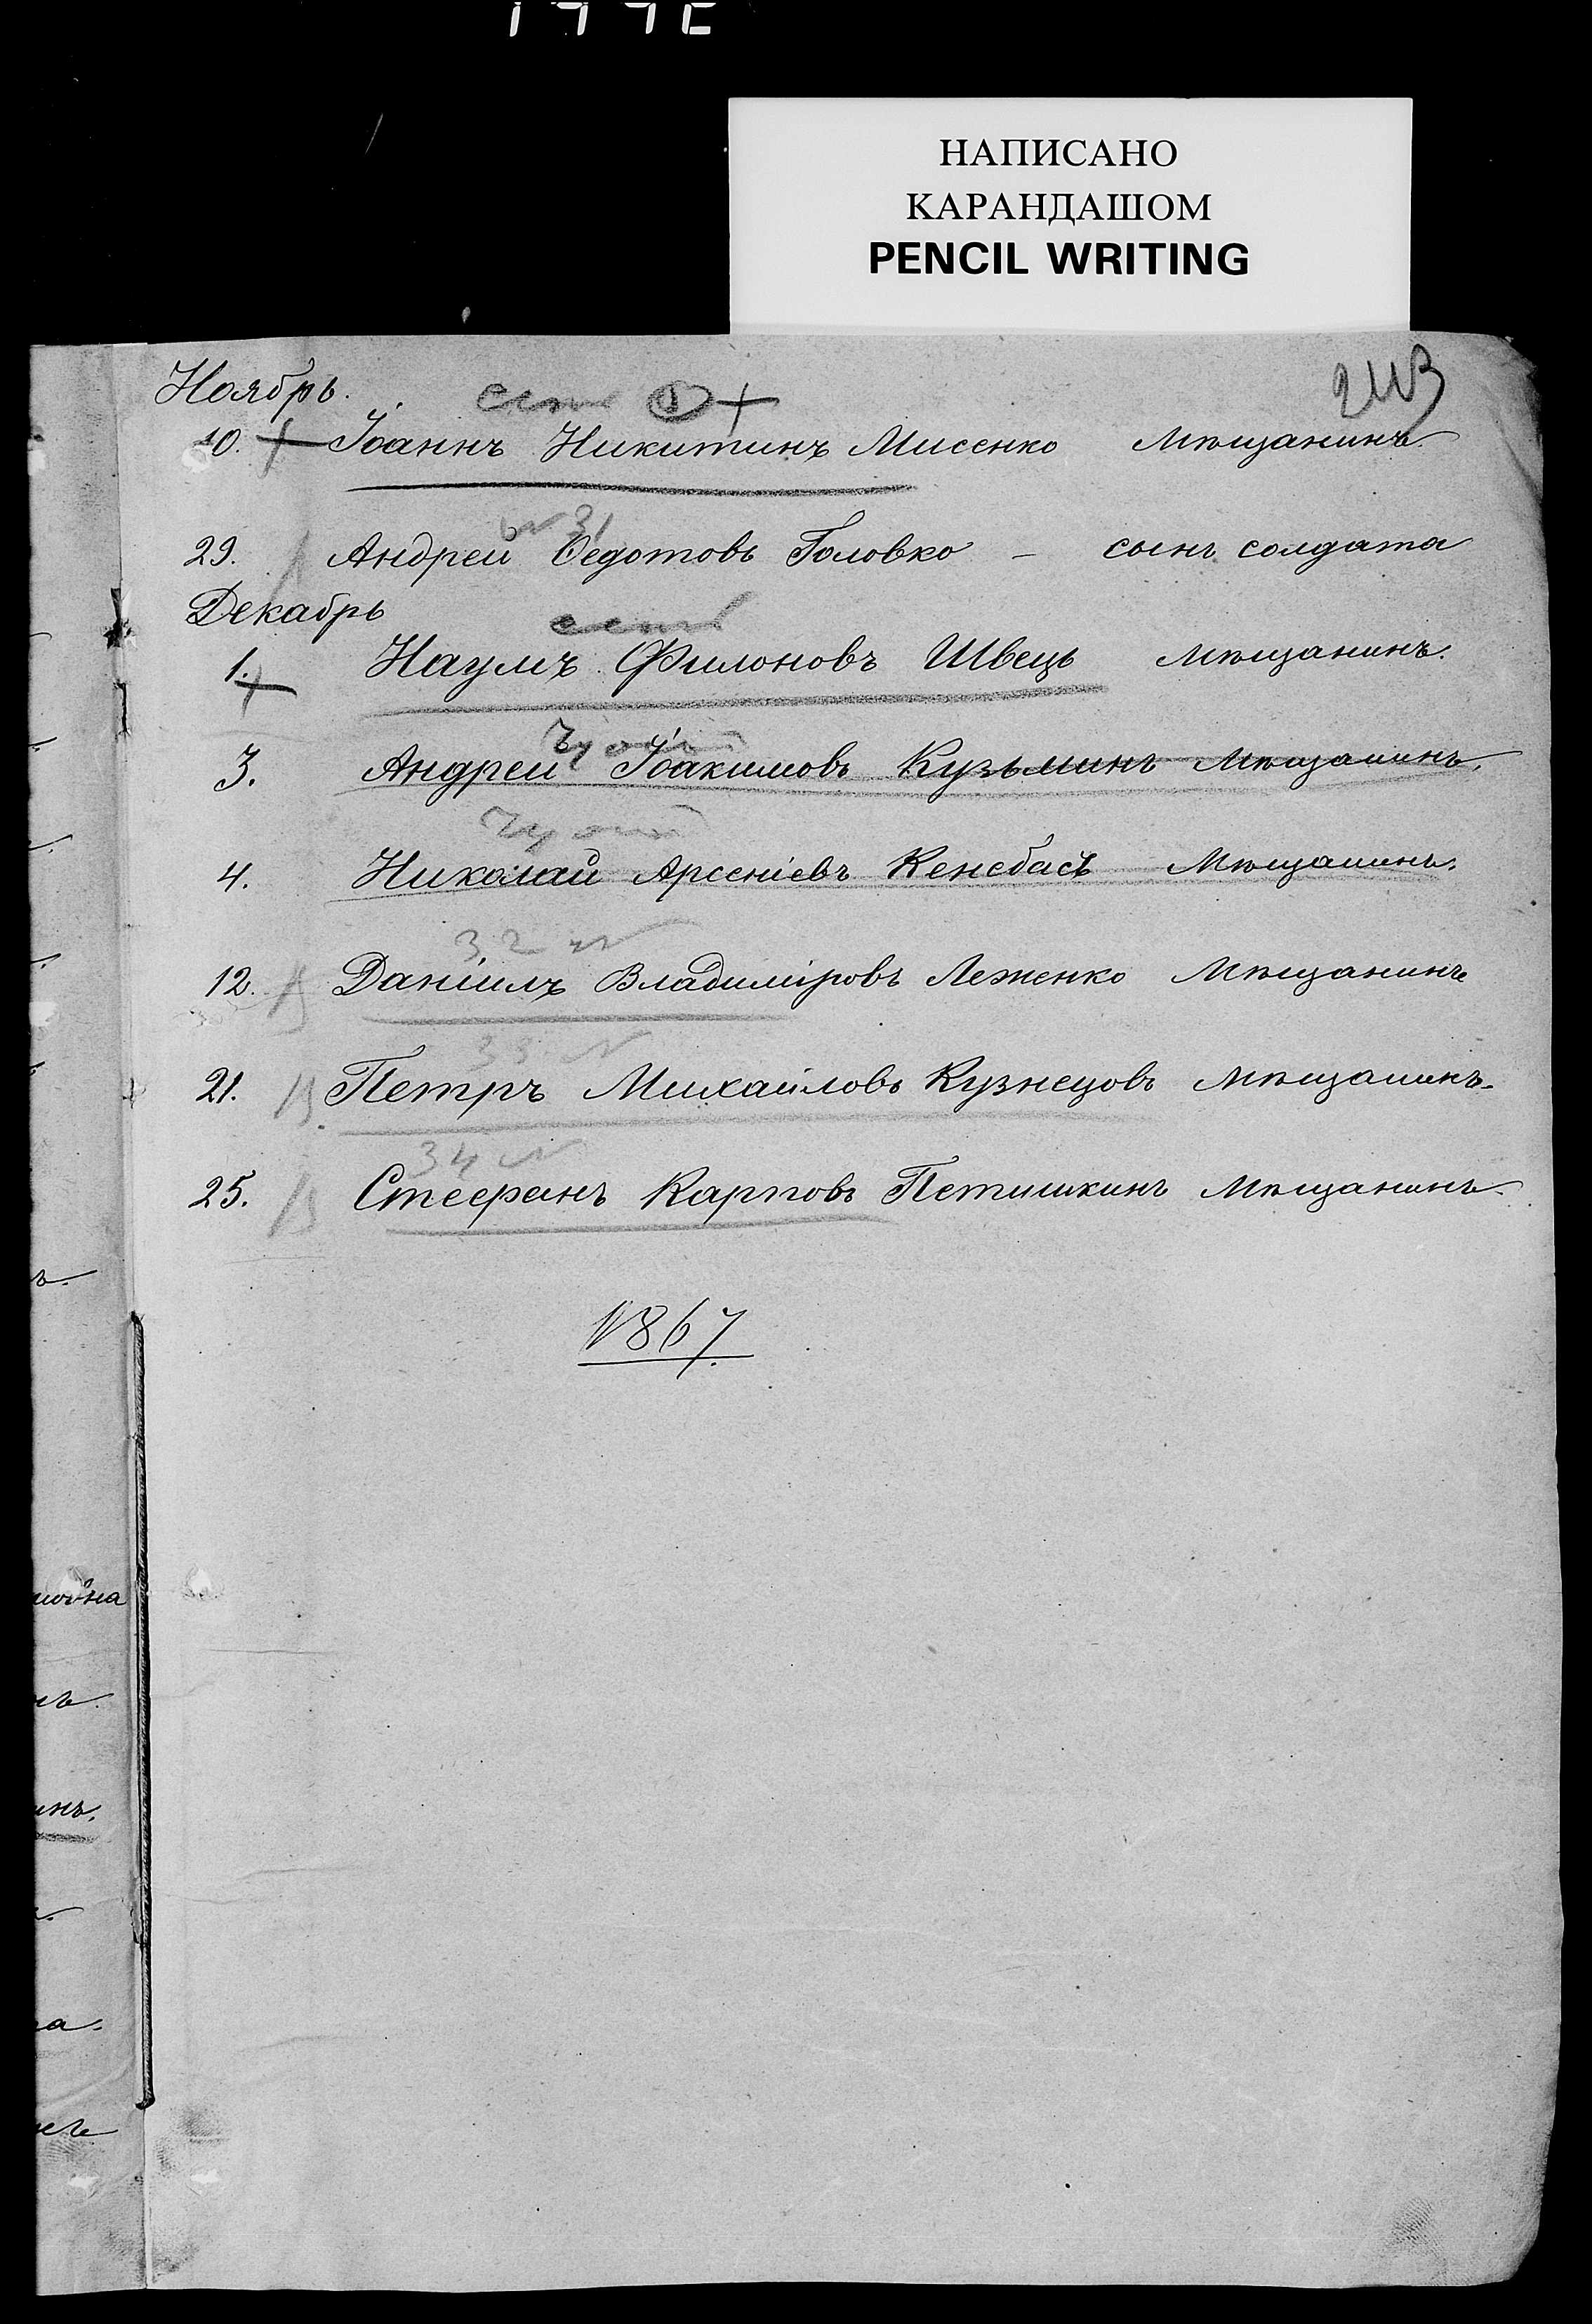 НАПИСАНО
КАРАНДАШОМ
PENCIL WRITING
Ноябрь.
есть
10. Іоаннъ Никитинъ Мисенко Мѣщанинъ.
№ 31
29. Андрей Ѳедотовъ Головко — сынъ солдата
Декабрь
есть
1. Наумъ Филоновъ Швецъ Мѣщанинъ.
3. Андрей Іоакимовъ Кузьминъ Мѣщанинъ.
4. Николай Арсеніевъ Мѣщанинъ.
32 №
12. Даніилъ Владиміровъ Леженко Мѣщанинъ
33 №
21. Петръ Михайловъ Кузнецовъ Мѣщанинъ.
34 №
25. Стефанъ Карповъ Петишкинъ Мѣщанинъ.
1867.